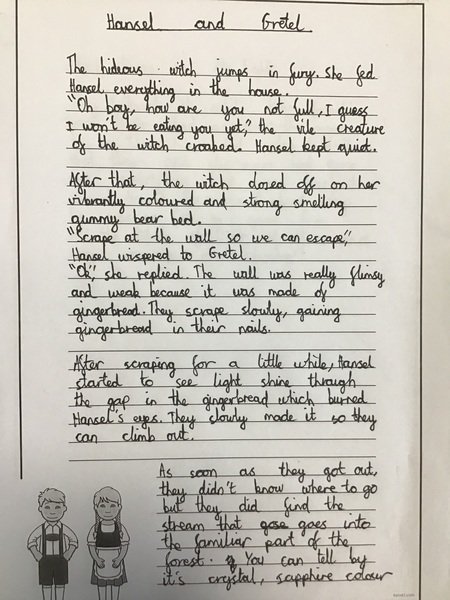 Hansel and Gretel
The hideous witch jumps in fury. She fed
Hansel everything in the house.
"Oh boy, how are you not full, I guess
I won't be eating you yet," the vile creature
of the witch croaked. Hansel kept quiet.
After that, the witch dozed off on her
vibrantly coloured and strong smelling
gummy bear bed.
"Scrape at the wall so we can escape,"
Hansel wispered to Gretel.
"Ok", she replied. The wall was really flimsy
and weak because it was made of
gingerbread. They scrape slowly, gaining
gingerbread in their nails.
After scraping for a little while, Hansel
started to see light shine through
the gap in the gingerbread which burned
Hansel's eyes. They slowly made it so they
can climb out.
As soon as they got out,
they didn't know where to go
but they did find the
stream that goes into
the familiar part of the
forest. You can tell by
it's crystal, sapphire colour